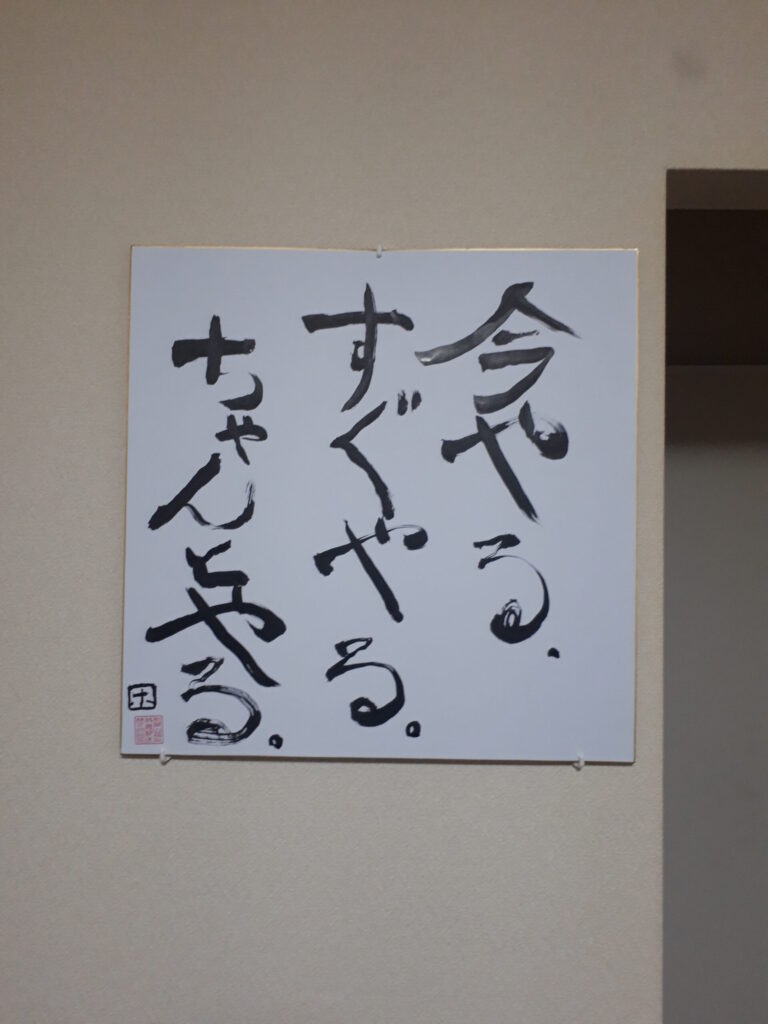 今やる。
すぐやる。
ちゃんとやる。